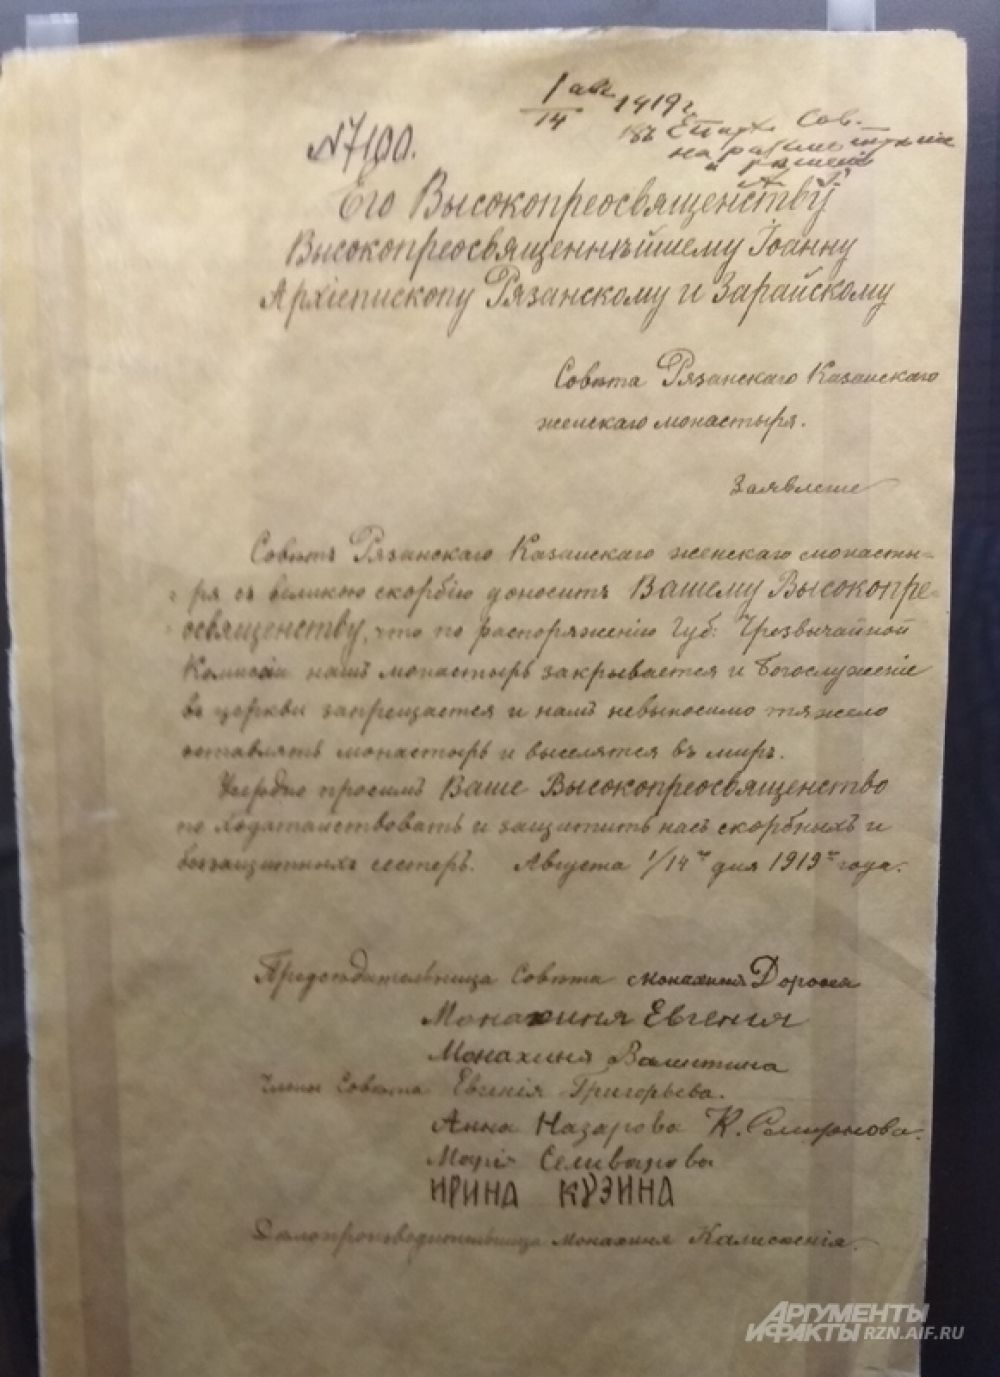 1/14 авг 1919 г.
Въ Епарх. Сов.
на разсмотрѣніе
и рѣшеніе
А. І.
№ 7100.
Его Высокопреосвященству
Высокопреосвященнѣйшему Іоанну
Архіепископу Рязанскому и Зарайскому
Совѣта Рязанскаго Казанскаго
женскаго монастыря.
Заявленіе
Совѣтъ Рязанскаго Казанскаго женскаго монасты-
ря съ великою скорбію доноситъ Вашему Высокопре-
освященству, что по распоряженію Губ: Чрезвычайной
Комисіи нашъ монастырь закрывается и Богослуженіе
въ церкви запрещается и намъ невыносимо тяжело
оставлять монастырь и выселятся въ миръ.
Усердно просимъ Ваше Высокопреосвященство
по ходатайствовать и защитить насъ скорбныхъ и
беззащитныхъ сестеръ. Августа 1/14 го дня 1919 го года.
Предсѣдательница Совѣта монахиня Дорофея
Монахиня Евгения
Монахиня Валентина
Члены Совѣта Евгенія Григорьева.
Анна Назарова К. Смирнова.
Марія Селиванова
ИРИНА КУЗИНА
Дѣлопроизводительница монахиня Калисѳенія.
АРГУМЕНТЫ
И ФАКТЫ RZN.AIF.RU